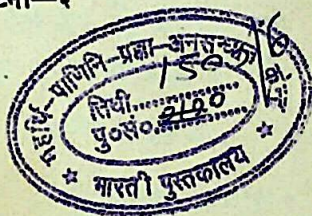 महर्षि-पाणिनि-प्रज्ञा-अनुसन्धान
150
तिथी..........
पु०सं० 2120
भारती पुस्तकालय